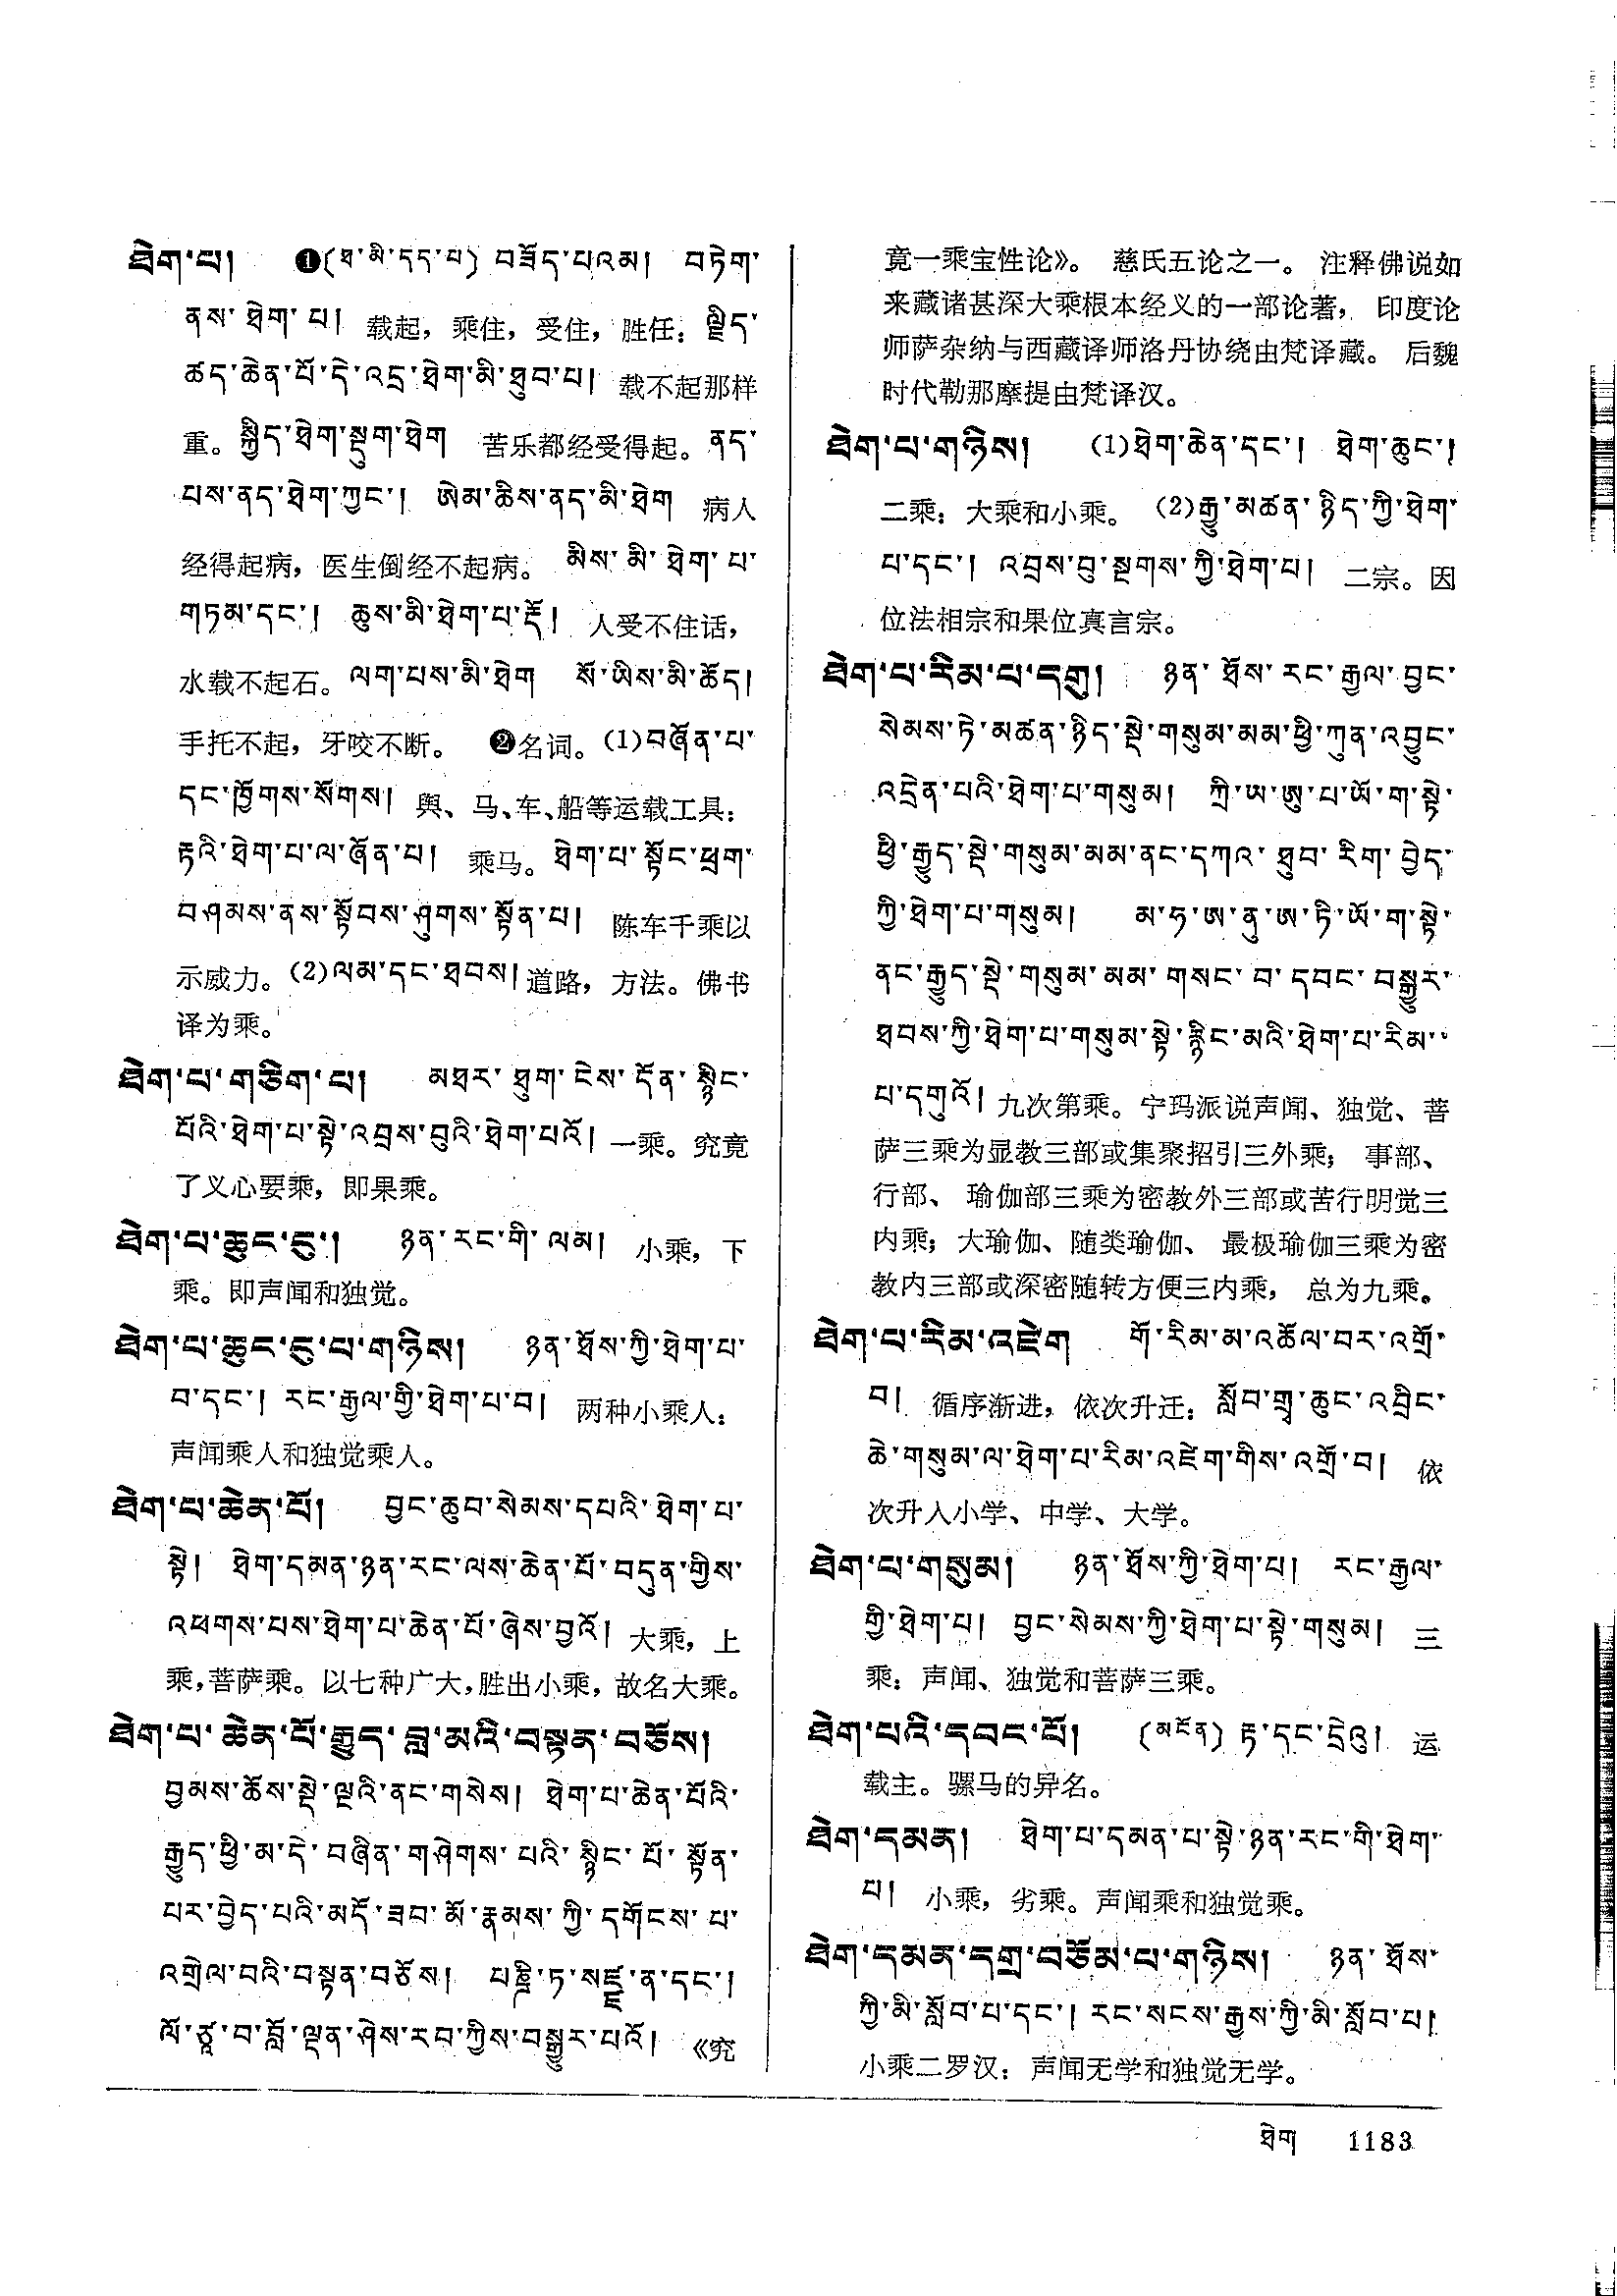 ཐེག་པ། ❶(ཐ་མི་དད་པ) བཟོད་པའམ། བཏེག་
ནས་ཐེག་པ། 载起，乘住，受住，胜任：ལྗིད་
ཚད་ཆེན་པོ་དེ་འདྲ་ཐེག་མི་ཐུབ་པ། 载不起那样
重。སྐྱིད་ཐེག་སྡུག་ཐེག 苦乐都经受得起。ནད་
པས་ནད་ཐེག་ཀྱང་། ཨེམ་ཆིས་ནད་མི་ཐེག 病人
经得起病，医生倒经不起病。མིས་མི་ཐེག་པ་
གཏམ་དང་། ཆུས་མི་ཐེག་པ་རྡོ། 人受不住话，
水载不起石。ལག་པས་མི་ཐེག སོ་ཡིས་མི་ཆོད།
手托不起，牙咬不断。 ❷名词。(1)བཞོན་པ་
དང་ཁྱོགས་སོགས། 舆、马、车、船等运载工具：
རྟའི་ཐེག་པ་ལ་ཞོན་པ། 乘马。ཐེག་པ་སྟོང་ཕྲག་
བཤམས་ནས་སྟོབས་ཤུགས་སྟོན་པ། 陈车千乘以
示威力。(2)ལམ་དང་ཐབས། 道路，方法。佛书
译为乘。
ཐེག་པ་གཅིག་པ། མཐར་ཐུག་ངེས་དོན་སྙིང་
པོའི་ཐེག་པ་སྟེ་འབྲས་བུའི་ཐེག་པའོ། 一乘。究竟
了义心要乘，即果乘。
ཐེག་པ་ཆུང་ངུ་། ཉན་རང་གི་ལམ། 小乘，下
乘。即声闻和独觉。
ཐེག་པ་ཆུང་ངུ་པ་གཉིས། ཉན་ཐོས་ཀྱི་ཐེག་པ་
བ་དང་། རང་རྒྱལ་གྱི་ཐེག་པ་བ། 两种小乘人：
声闻乘人和独觉乘人。
ཐེག་པ་ཆེན་པོ། བྱང་ཆུབ་སེམས་དཔའི་ཐེག་པ་
སྟེ། ཐེག་དམན་ཉན་རང་ལས་ཆེན་པོ་བདུན་གྱིས་
འཕགས་པས་ཐེག་པ་ཆེན་པོ་ཞེས་བྱའོ། 大乘，上
乘，菩萨乘。以七种广大，胜出小乘，故名大乘。
ཐེག་པ་ཆེན་པོ་རྒྱུད་བླ་མའི་བསྟན་བཅོས།
བྱམས་ཆོས་སྡེ་ལྔའི་ནང་གསེས། ཐེག་པ་ཆེན་པོའི་
རྒྱུད་ཕྱི་མ་དེ་བཞིན་གཤེགས་པའི་སྙིང་པོ་སྟོན་
པར་བྱེད་པའི་མདོ་ཟབ་མོ་རྣམས་ཀྱི་དགོངས་པ་
འགྲེལ་བའི་བསྟན་བཅོས། པཎྜི་ཏ་སཛྫ་ན་དང་།
ལོ་ཙཱ་བ་བློ་ལྡན་ཤེས་རབ་ཀྱིས་བསྒྱུར་པའོ། 《究
竟一乘宝性论》。 慈氏五论之一。 注释佛说如
来藏诸甚深大乘根本经义的一部论著， 印度论
师萨杂纳与西藏译师洛丹协绕由梵译藏。 后魏
时代勒那摩提由梵译汉。
ཐེག་པ་གཉིས། (1)ཐེག་ཆེན་དང་། ཐེག་ཆུང་།
二乘：大乘和小乘。 (2)རྒྱུ་མཚན་ཉིད་ཀྱི་ཐེག་
པ་དང་། འབྲས་བུ་སྔགས་ཀྱི་ཐེག་པ། 二宗。因
位法相宗和果位真言宗。
ཐེག་པ་རིམ་པ་དགུ། ཉན་ཐོས་རང་རྒྱལ་བྱང་
སེམས་ཏེ་མཚན་ཉིད་སྡེ་གསུམ་མམ་ཕྱི་ཀུན་འབྱུང་
འདྲེན་པའི་ཐེག་པ་གསུམ། ཀྲི་ཡ་ཨུ་པ་ཡོ་ག་སྟེ་
ཕྱི་རྒྱུད་སྡེ་གསུམ་མམ་ནང་དཀའ་ཐུབ་རིག་བྱེད་
ཀྱི་ཐེག་པ་གསུམ། མ་ཧཱ་ཨ་ནུ་ཨ་ཏི་ཡོ་ག་སྟེ་
ནང་རྒྱུད་སྡེ་གསུམ་མམ་གསང་བ་དབང་བསྒྱུར་
ཐབས་ཀྱི་ཐེག་པ་གསུམ་སྟེ་རྙིང་མའི་ཐེག་པ་རིམ་
པ་དགུའོ། 九次第乘。宁玛派说声闻、独觉、菩
萨三乘为显教三部或集聚招引三外乘； 事部、
行部、 瑜伽部三乘为密教外三部或苦行明觉三
内乘；大瑜伽、随类瑜伽、 最极瑜伽三乘为密
教内三部或深密随转方便三内乘， 总为九乘。
ཐེག་པ་རིམ་འཛེག གོ་རིམ་མ་འཆོལ་བར་འགྲོ་
བ། 循序渐进，依次升迁：སློབ་གྲྭ་ཆུང་འབྲིང་
ཆེ་གསུམ་ལ་ཐེག་པ་རིམ་འཛེག་གིས་འགྲོ་བ། 依
次升入小学、中学、大学。
ཐེག་པ་གསུམ། ཉན་ཐོས་ཀྱི་ཐེག་པ། རང་རྒྱལ་
གྱི་ཐེག་པ། བྱང་སེམས་ཀྱི་ཐེག་པ་སྟེ་གསུམ། 三
乘：声闻、独觉和菩萨三乘。
ཐེག་པའི་དབང་པོ། (མངོན) རྟ་དང་དྲེའུ། 运
载主。骡马的异名。
ཐེག་དམན། ཐེག་པ་དམན་པ་སྟེ་ཉན་རང་གི་ཐེག་
པ། 小乘，劣乘。声闻乘和独觉乘。
ཐེག་དམན་དགྲ་བཅོམ་པ་གཉིས། ཉན་ཐོས་
ཀྱི་མི་སློབ་པ་དང་། རང་སངས་རྒྱས་ཀྱི་མི་སློབ་པ།
小乘二罗汉：声闻无学和独觉无学。
ཐེག 1183